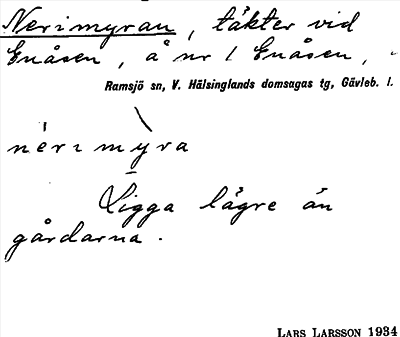 Nerimyran, täkter vid
Enåsen, å nr 1 Enåsen,
Ramsjö sn, V. Hälsinglands domsagas tg, Gävleb. l.
nèrımy̠ra
Ligga lägre än
gårdarna.
LARS LARSSON 1934